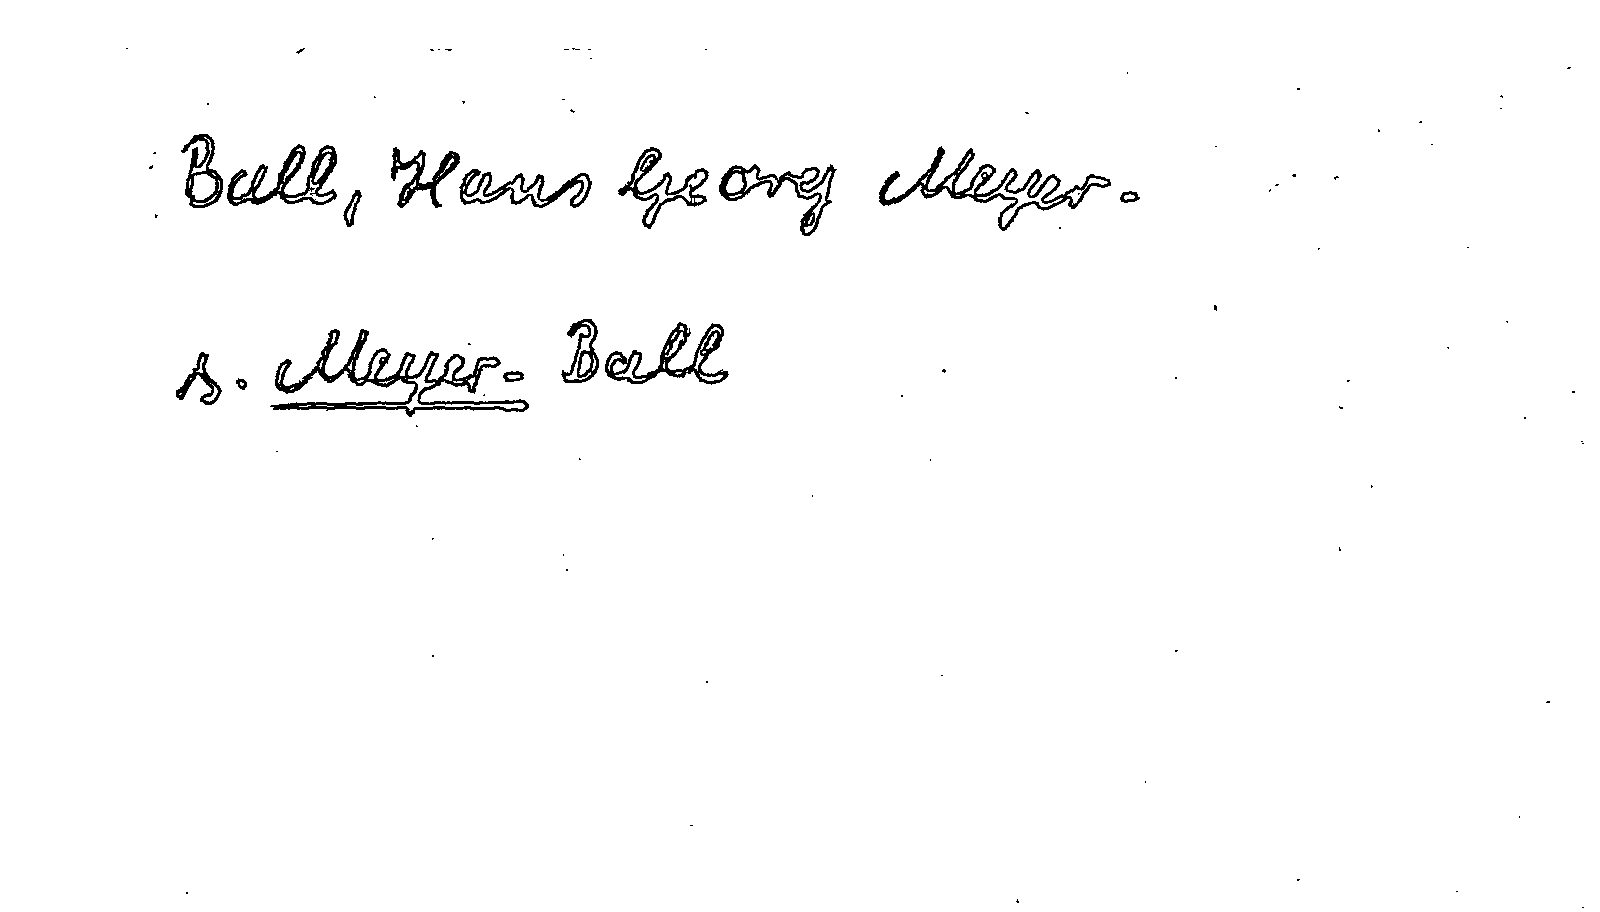 Ball, Hans Georg Meyer-
s. Meyer- Ball